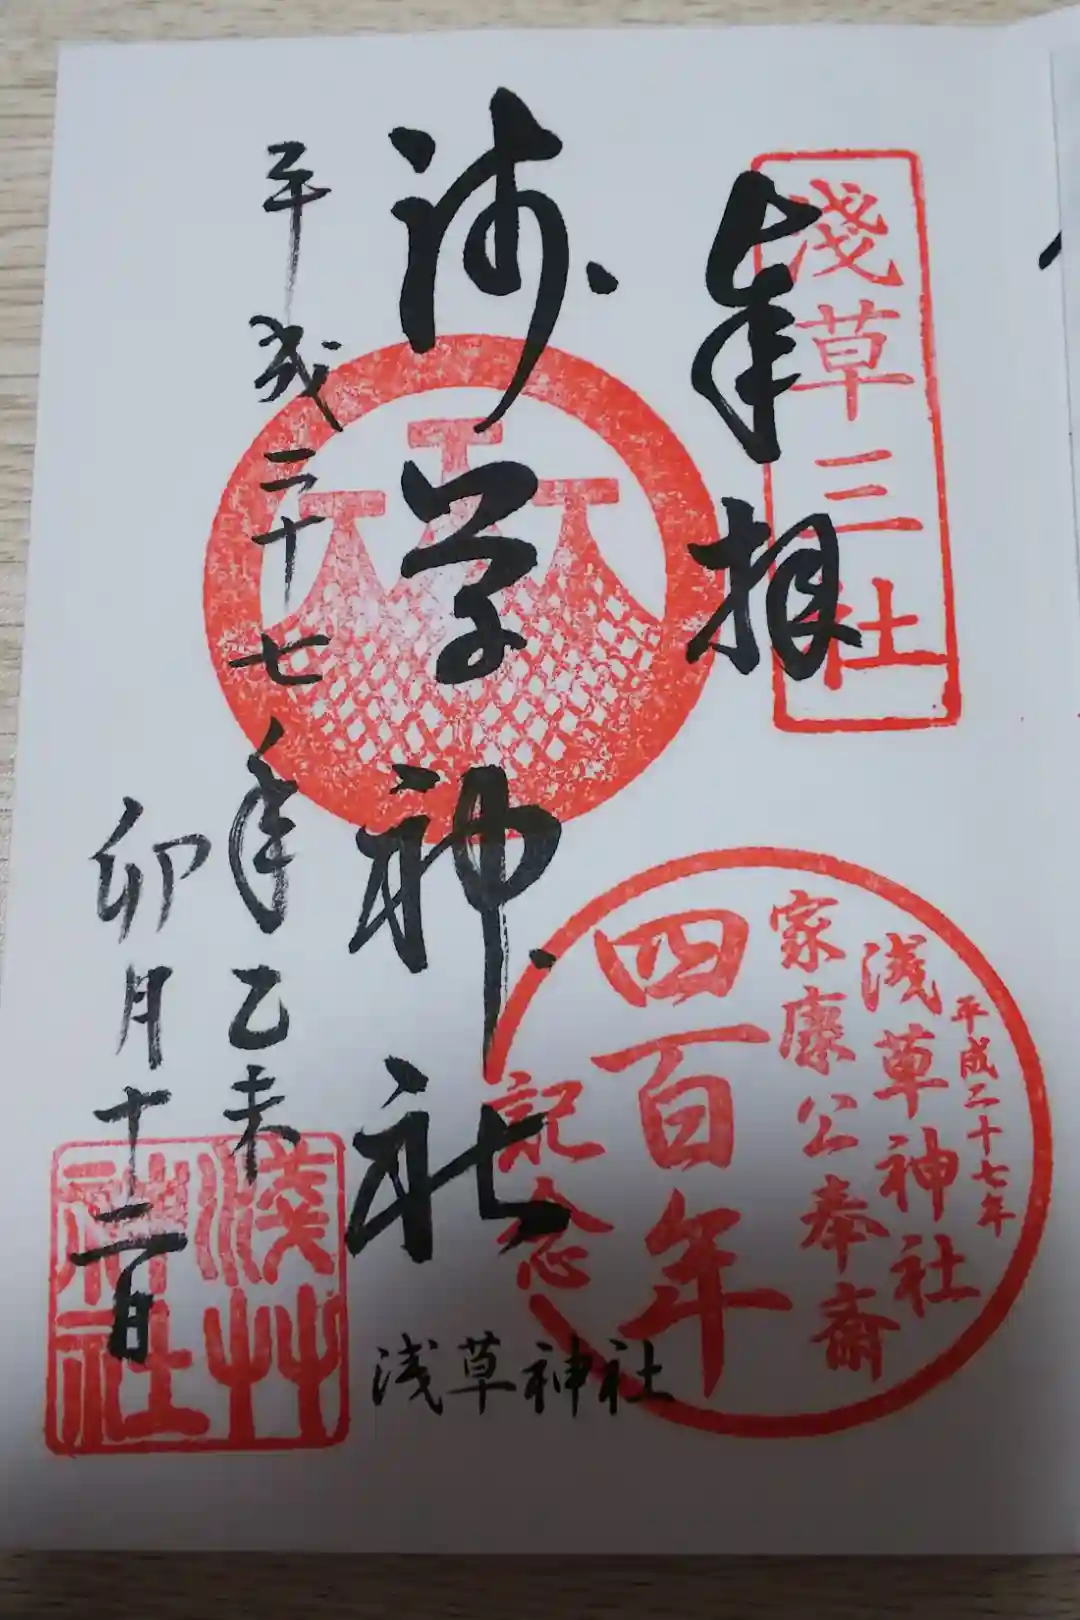 奉拝
浅草三社
浅草神社
平成二十七年乙未
卯月十二日
平成二十七年
浅草神社
家康公奉斎
四百年
記念
淺艸
神社
浅草神社